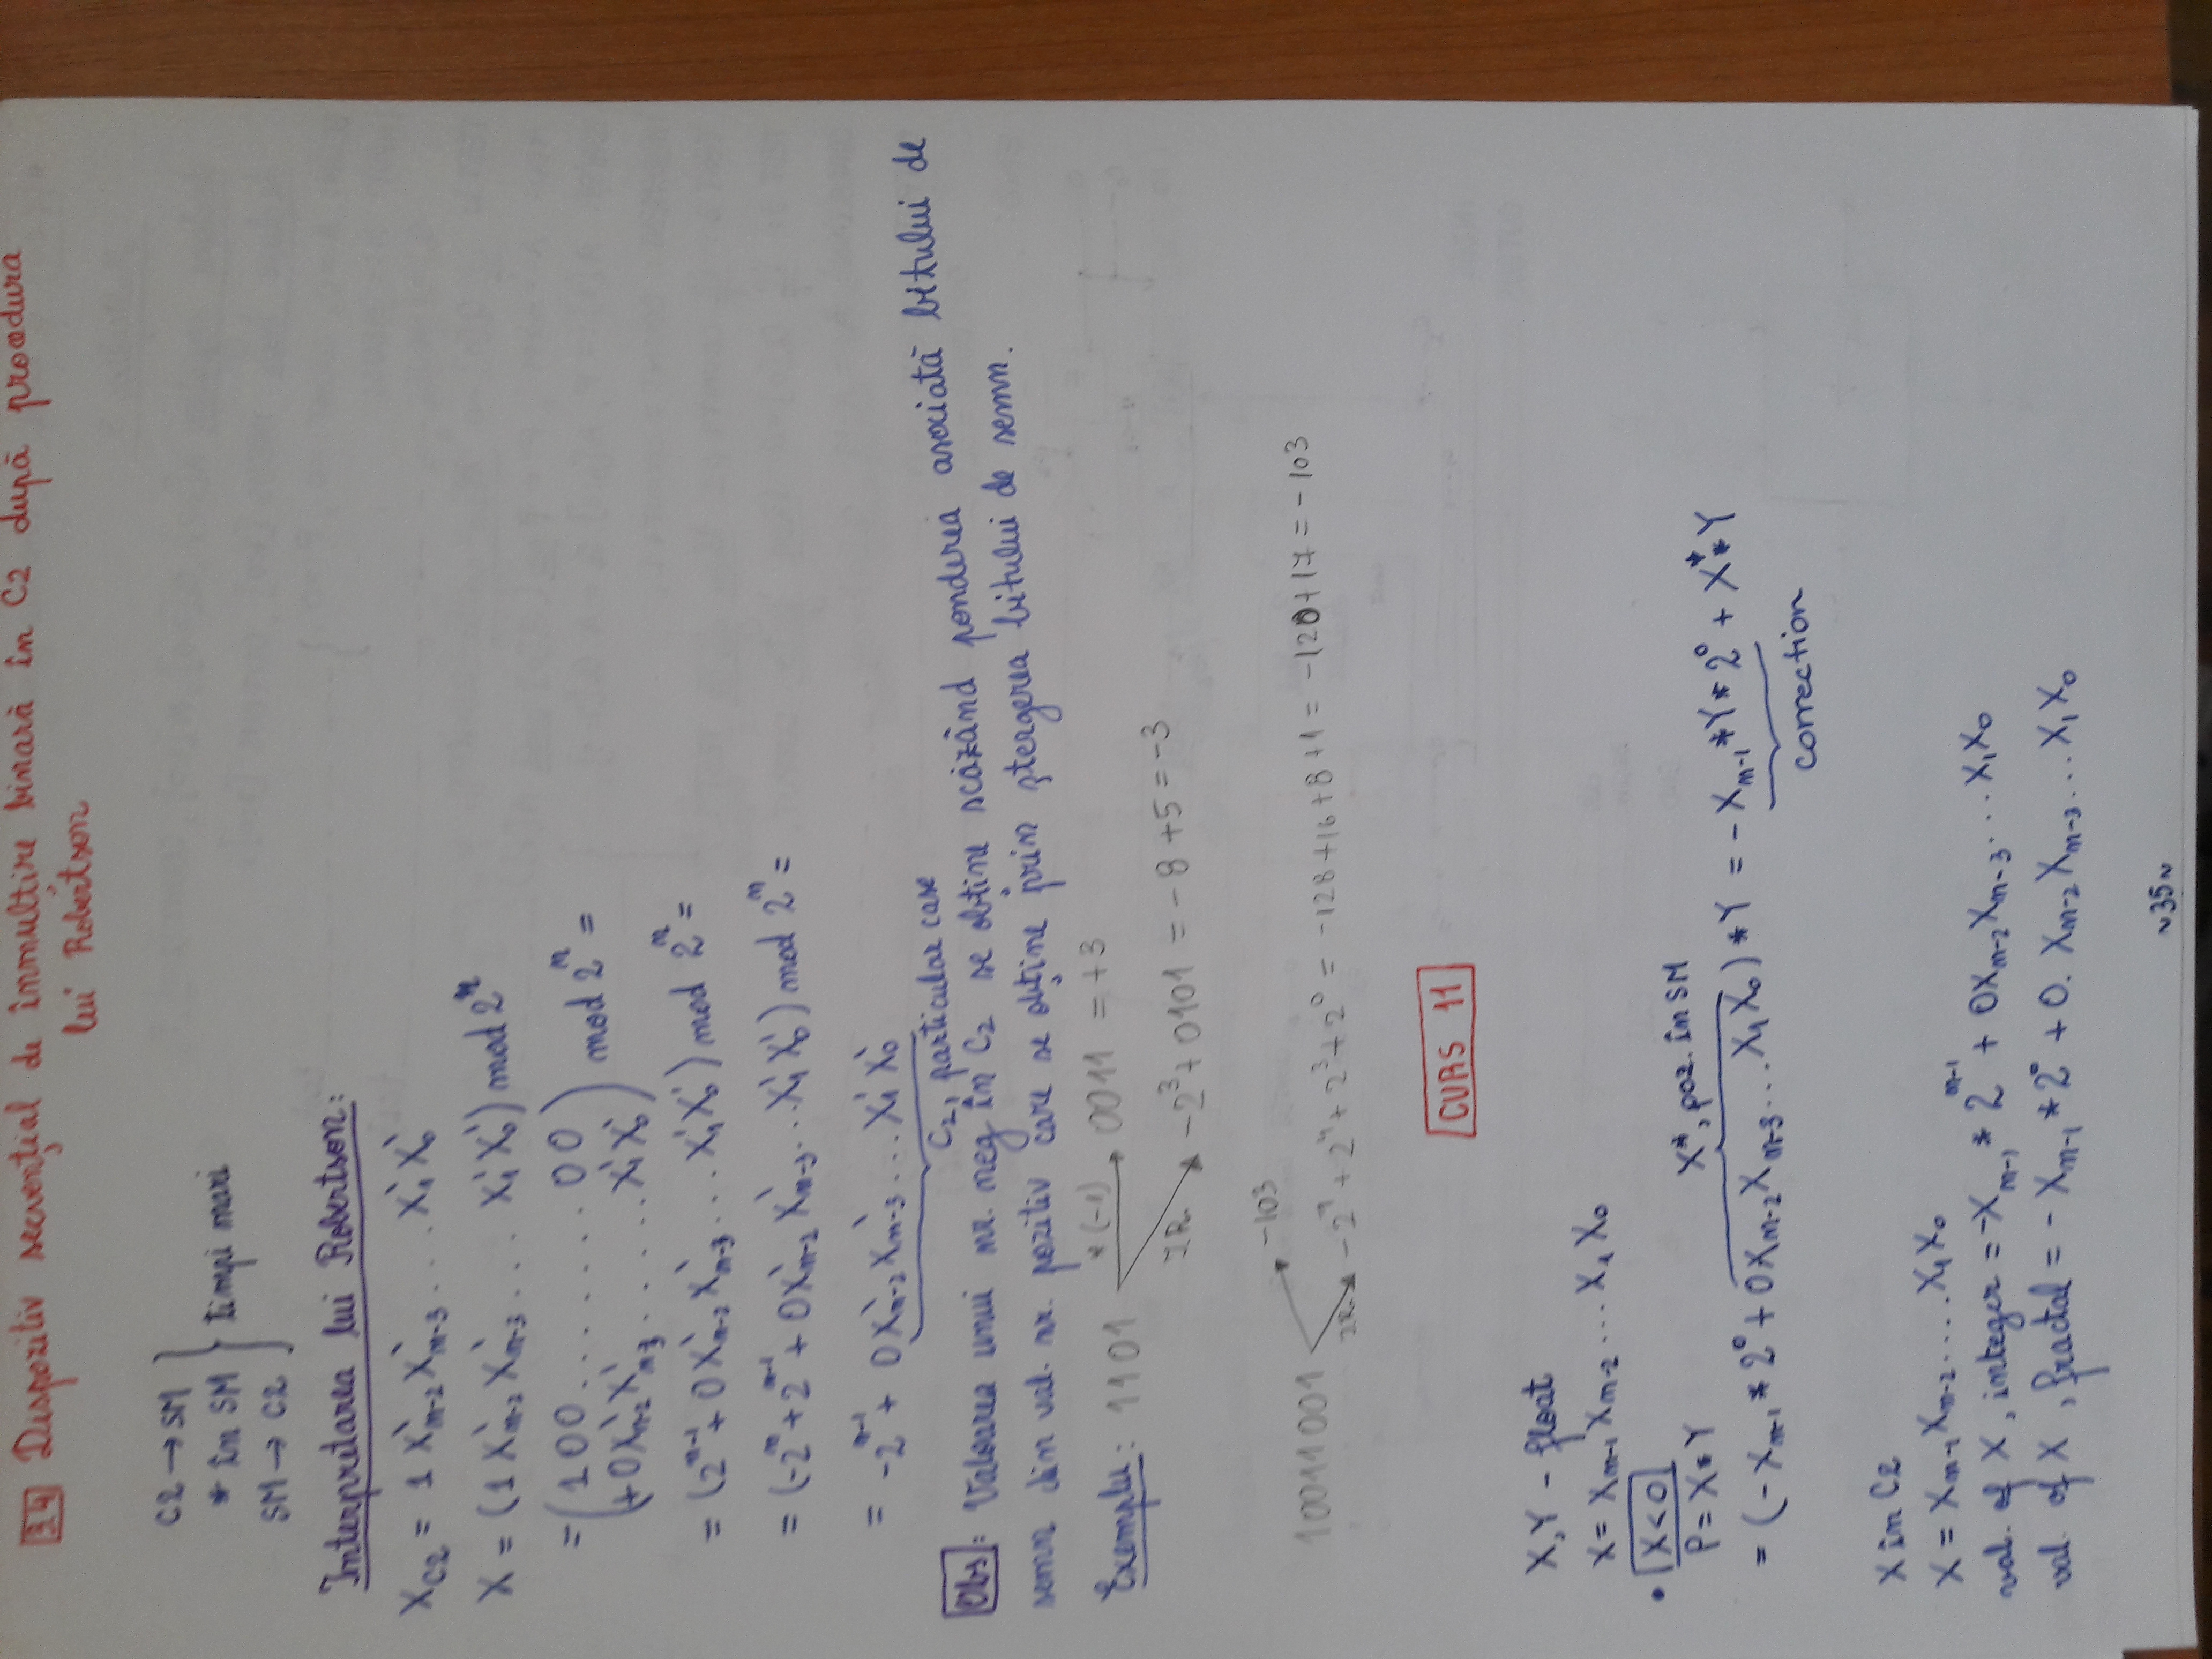 3.4 Dispozitiv secvențial de înmulțire binară în C2 după procedura
lui Robertson
C2 → SM
* în SM
SM → C2
timpi mari
Interpretarea lui Robertson:
X_C2 = 1 X'_{n-2} X'_{n-3} . . . X'_1 X'_0
X = (1 X'_{n-2} X'_{n-3} . . . X'_1 X'_0) mod 2^n
= (1 0 0 . . . . . . . . 0 0
+ 0 X'_{n-2} X'_{n-3} . . . . . . X'_1 X'_0) mod 2^n =
= (2^{n-1} + 0 X'_{n-2} X'_{n-3} . . . X'_1 X'_0) mod 2^n =
= (-2^n + 2^{n-1} + 0 X'_{n-2} X'_{n-3} . . . X'_1 X'_0) mod 2^n =
= -2^{n-1} + 0 X'_{n-2} X'_{n-3} . . . X'_1 X'_0
C2, particular case
Obs: Valoarea unui nr. neg în C2 se obține scăzând ponderea asociată bitului de
semn din val. nr. pozitiv care se obține prin ștergerea bitului de semn.
Exemplu: 1101 *(-1) → 0011 = +3
I.R. → -2^3 + 0101 = -8 + 5 = -3
10011001 → -103
I.R. → -2^7 + 2^4 + 2^3 + 2^0 = -128 + 16 + 8 + 1 = -120 + 17 = -103
CURS 11
X, Y - float
X = X_{n-1} X_{n-2} ... X_1 X_0
• X < 0
P = X * Y
X*, poz. în SM
= (-X_{n-1} * 2^0 + 0 X_{n-2} X_{n-3} ... X_1 X_0) * Y = -X_{n-1} * Y * 2^0 + X* * Y
correction
X în C2
X = X_{n-1} X_{n-2} . . . . X_1 X_0
val. of X, integer = -X_{n-1} * 2^{n-1} + 0 X_{n-2} X_{n-3} . . . X_1 X_0
val. of X, fractal = -X_{n-1} * 2^0 + 0. X_{n-2} X_{n-3} . . . X_1 X_0
~35~